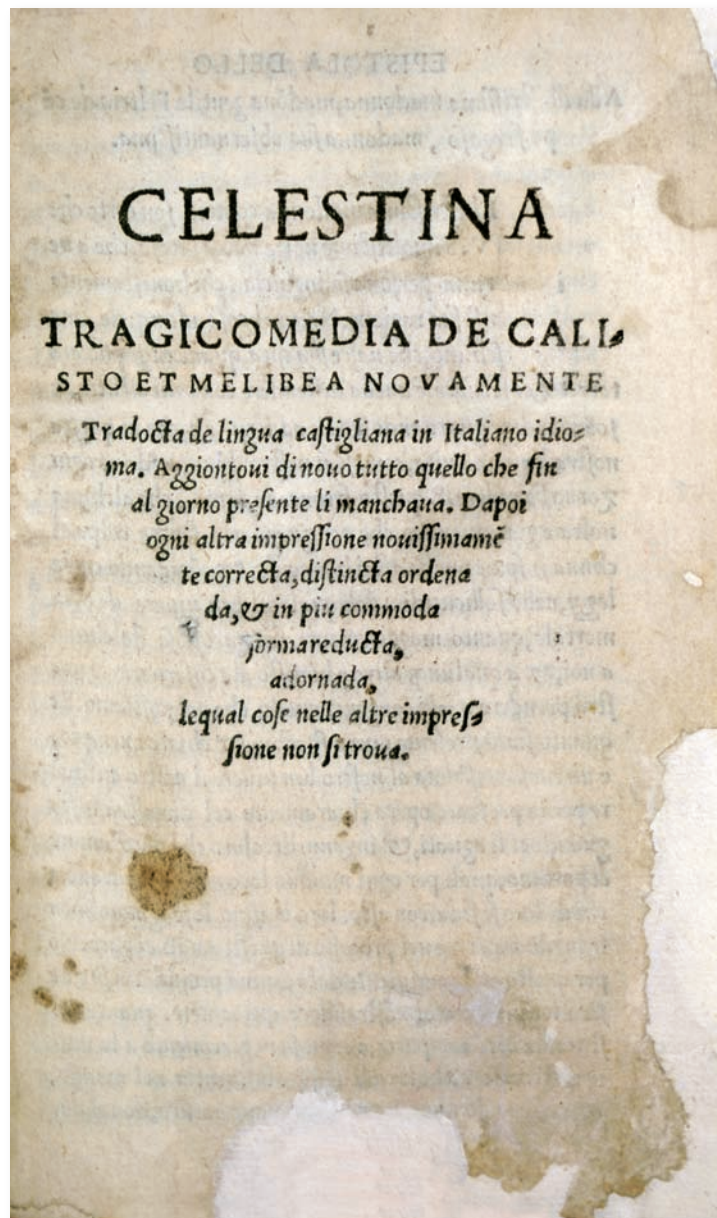 CELESTINA
TRAGICOMEDIA DE CALI
STO ET MELIBEA NOVAMENTE
Tradocta de lingua castigliana in Italiano idio⸗
ma. Aggiontoui di nouo tutto quello che fin
al giorno presente li manchaua. Dapoi
ogni altra impressione nouissimamē
te correcta, distincta ordena
da, & in piu commoda
forma reducta,
adornada,
lequal cose nelle altre impres⸗
sione non si troua.